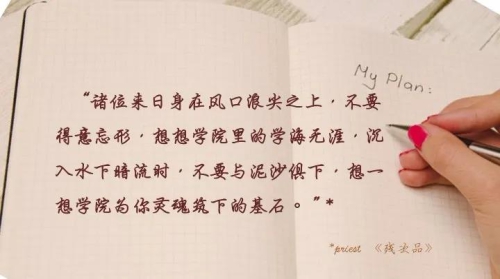 My Plan:
“诸位来日身在风口浪尖之上，不要
得意忘形，想想学院里的学海无涯，沉
入水下暗流时，不要与泥沙俱下，想一
想学院为你灵魂筑下的基石。”*
*priest 《残次品》